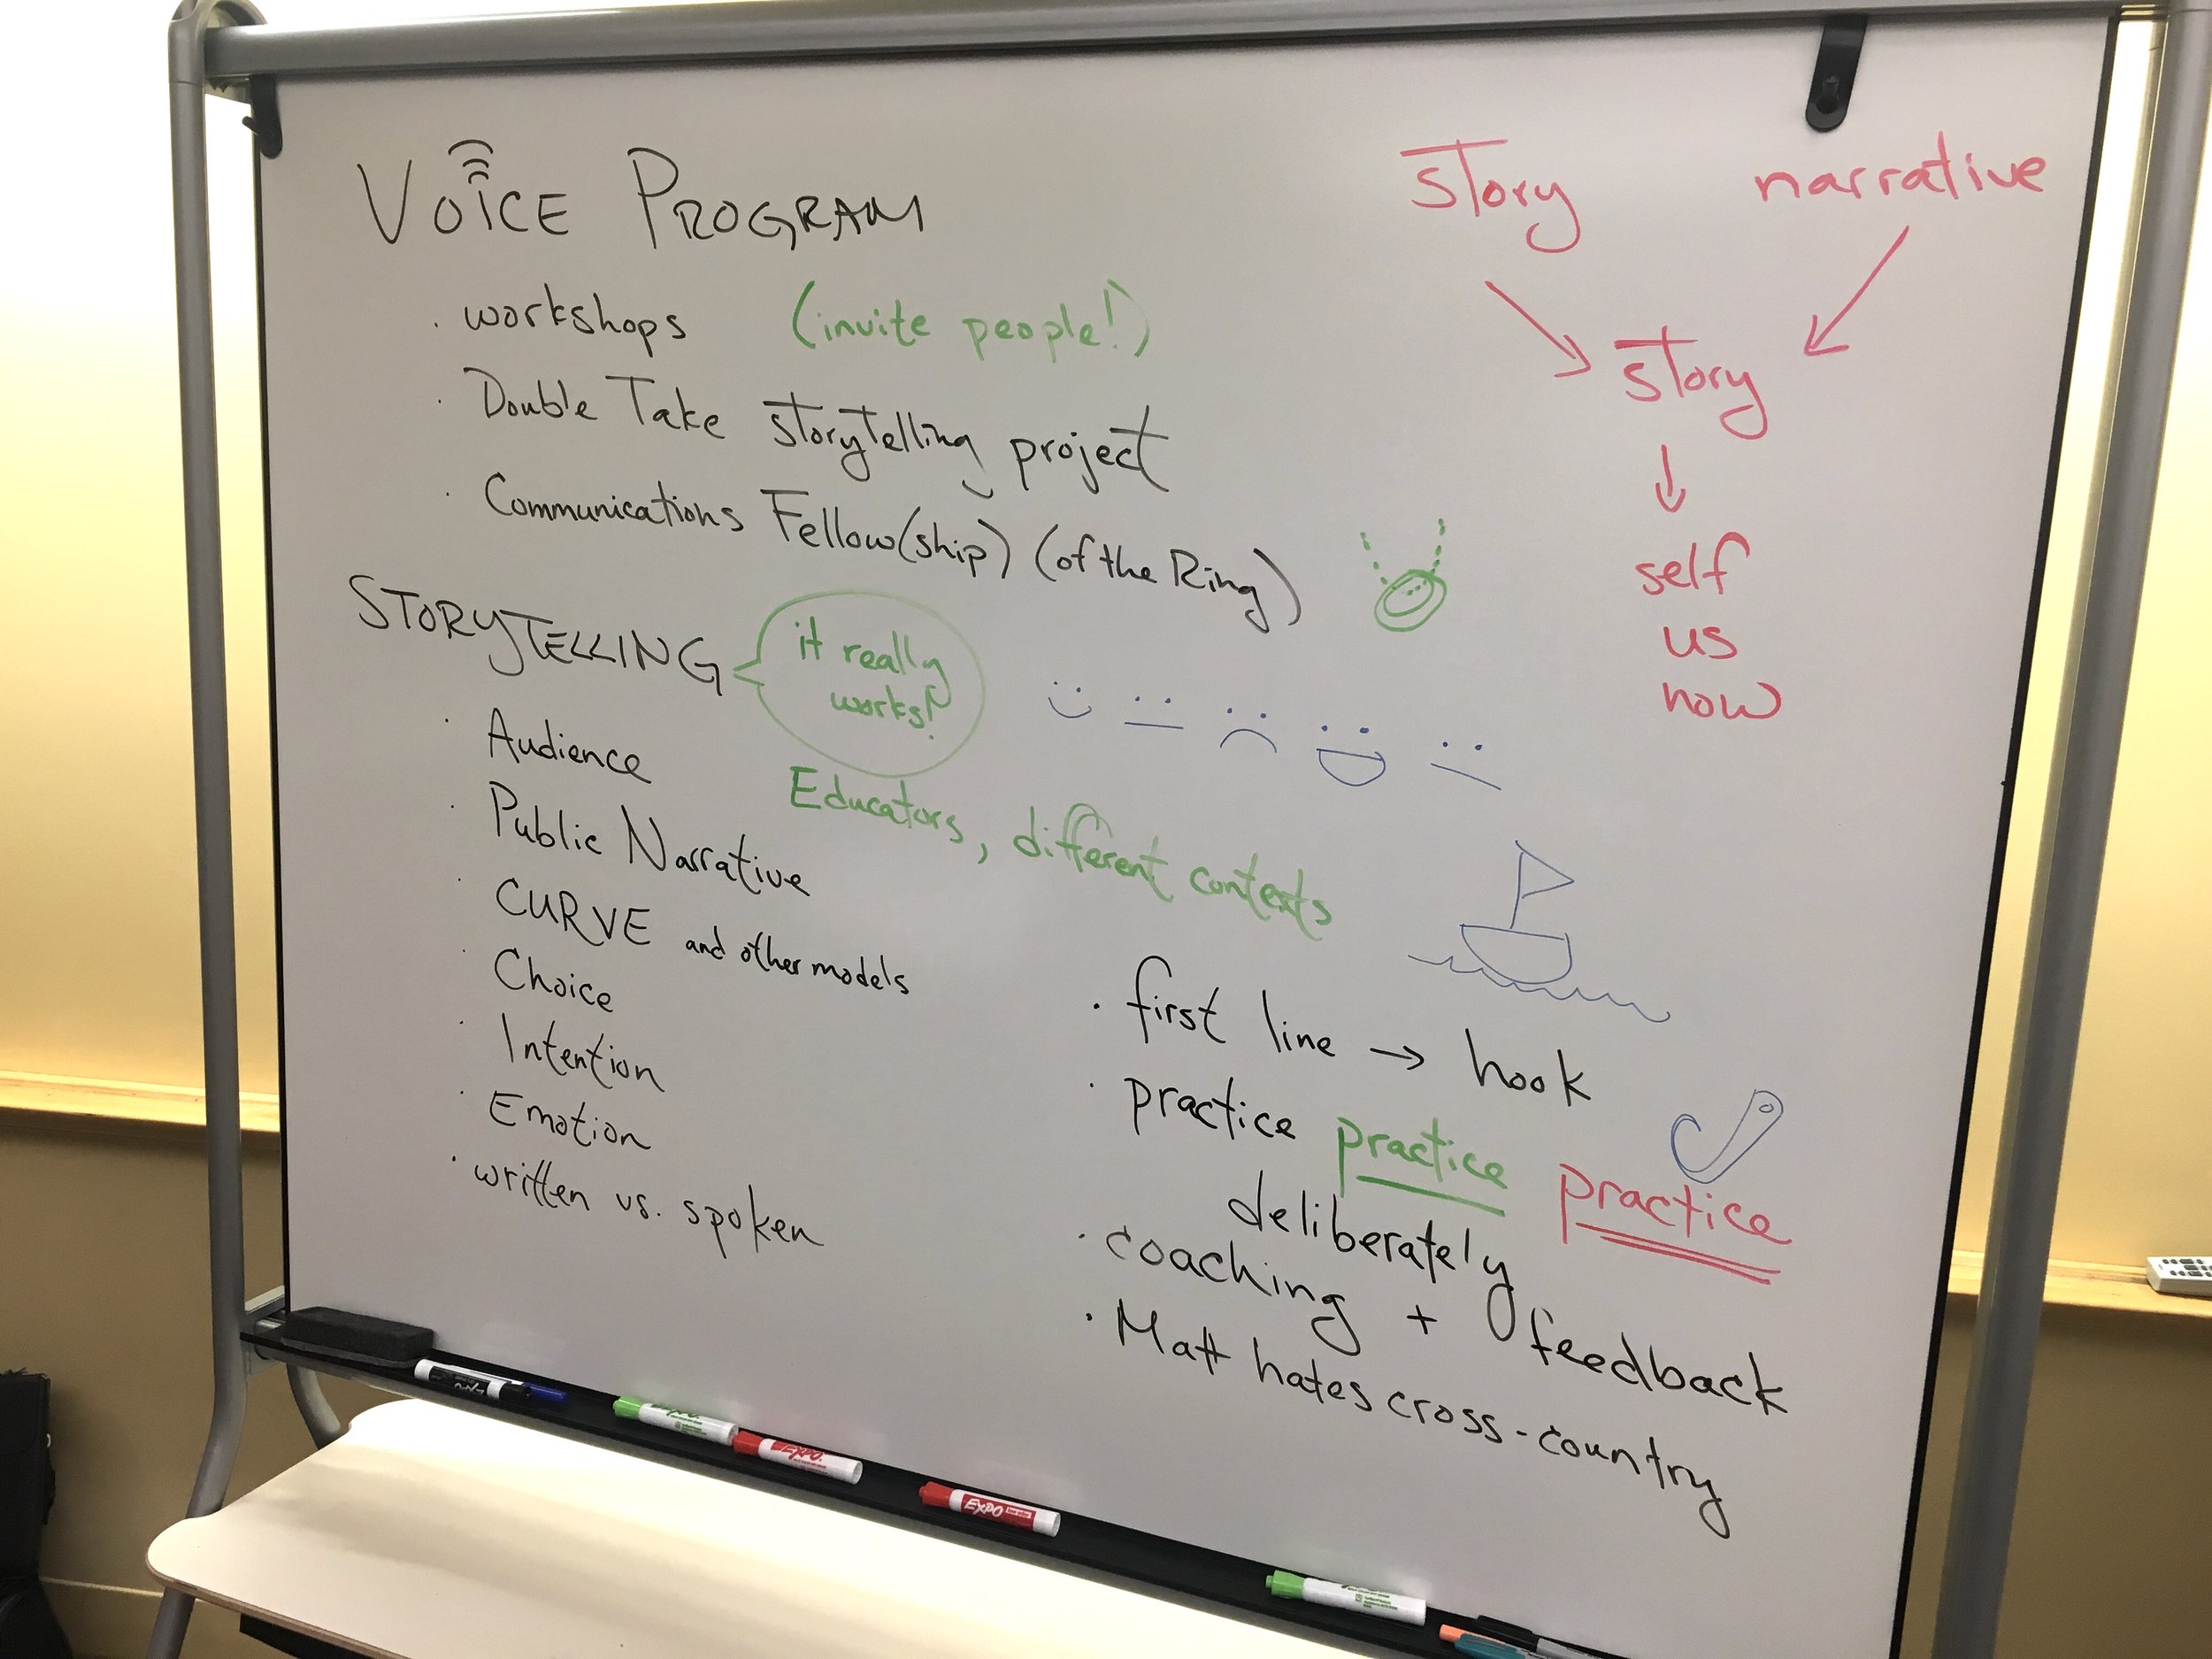 VOICE PROGRAM
. workshops (invite people!)
. Double Take storytelling project
. Communications Fellow(ship) (of the Ring)
STORYTELLING
it really
works!
. Audience
Educators, different contexts
. Public Narrative
. CURVE and other models
. Choice
. Intention
. Emotion
. written vs. spoken
story narrative
story
self
us
now
. first line → hook
. practice practice practice
deliberately
. coaching + feedback
. Matt hates cross-country
EXPO
EXPO